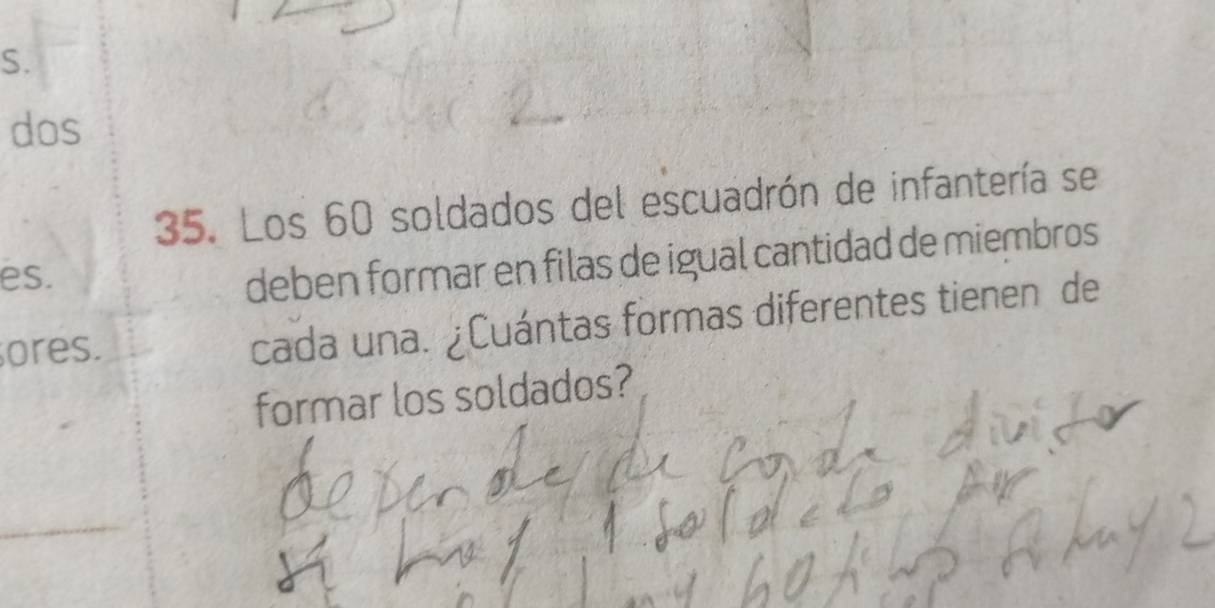 s.
dos
es.
ores.
35. Los 60 soldados del escuadrón de infantería se
deben formar en filas de igual cantidad de miembros
cada una. ¿Cuántas formas diferentes tienen de
formar los soldados?
depende de cada divitor
si hay 1 soldado por
hay 60 filas si hay 2